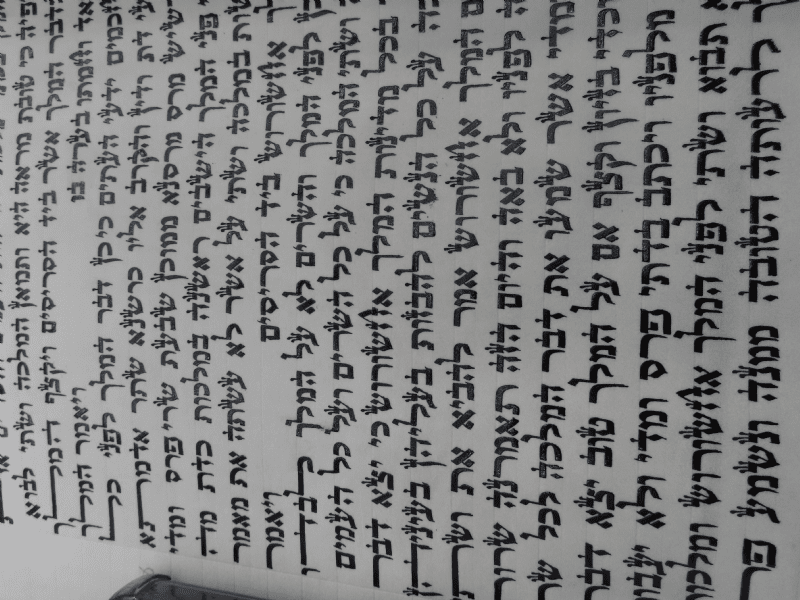 כי טובת מראה היא ותמאן המלכה ושתי לבוא
בדבר המלך אשר ביד הסריסים ויקצף המלך
מאד וחמתו בערה בו ויאמר המלך
לחכמים ידעי העתים כי כן דבר המלך לפני כל
ידעי דת ודין והקרב אליו כרשנא שתר אדמתא
תרשיש מרס מרסנא ממוכן שבעת שרי פרס ומדי
פני המלך הישבים ראשנה במלכות כדת מה
לעשות במלכה ושתי על אשר לא עשתה את מאמר
אחשורוש ביד הסריסים ויאמר
לפני המלך והשרים לא על המלך לבדו
ושתי המלכה כי על כל השרים ועל כל העמים
בכל מדינות המלך אחשורוש כי יצא דבר
על כל הנשים להבזות בעליהן בעיניהן
המלך אחשורוש אמר להביא את ושתי
לפניו ולא באה והיום הזה תאמרנה שרות
ומדי אשר שמעו את דבר המלכה לכל שרי
וכדי בזיון וקצף אם על המלך טוב יצא דבר
מלפניו ויכתב בדתי פרס ומדי ולא יעבור
תבוא ושתי לפני המלך אחשורוש ומלכותה
לרעותה הטובה ממנה ונשמע